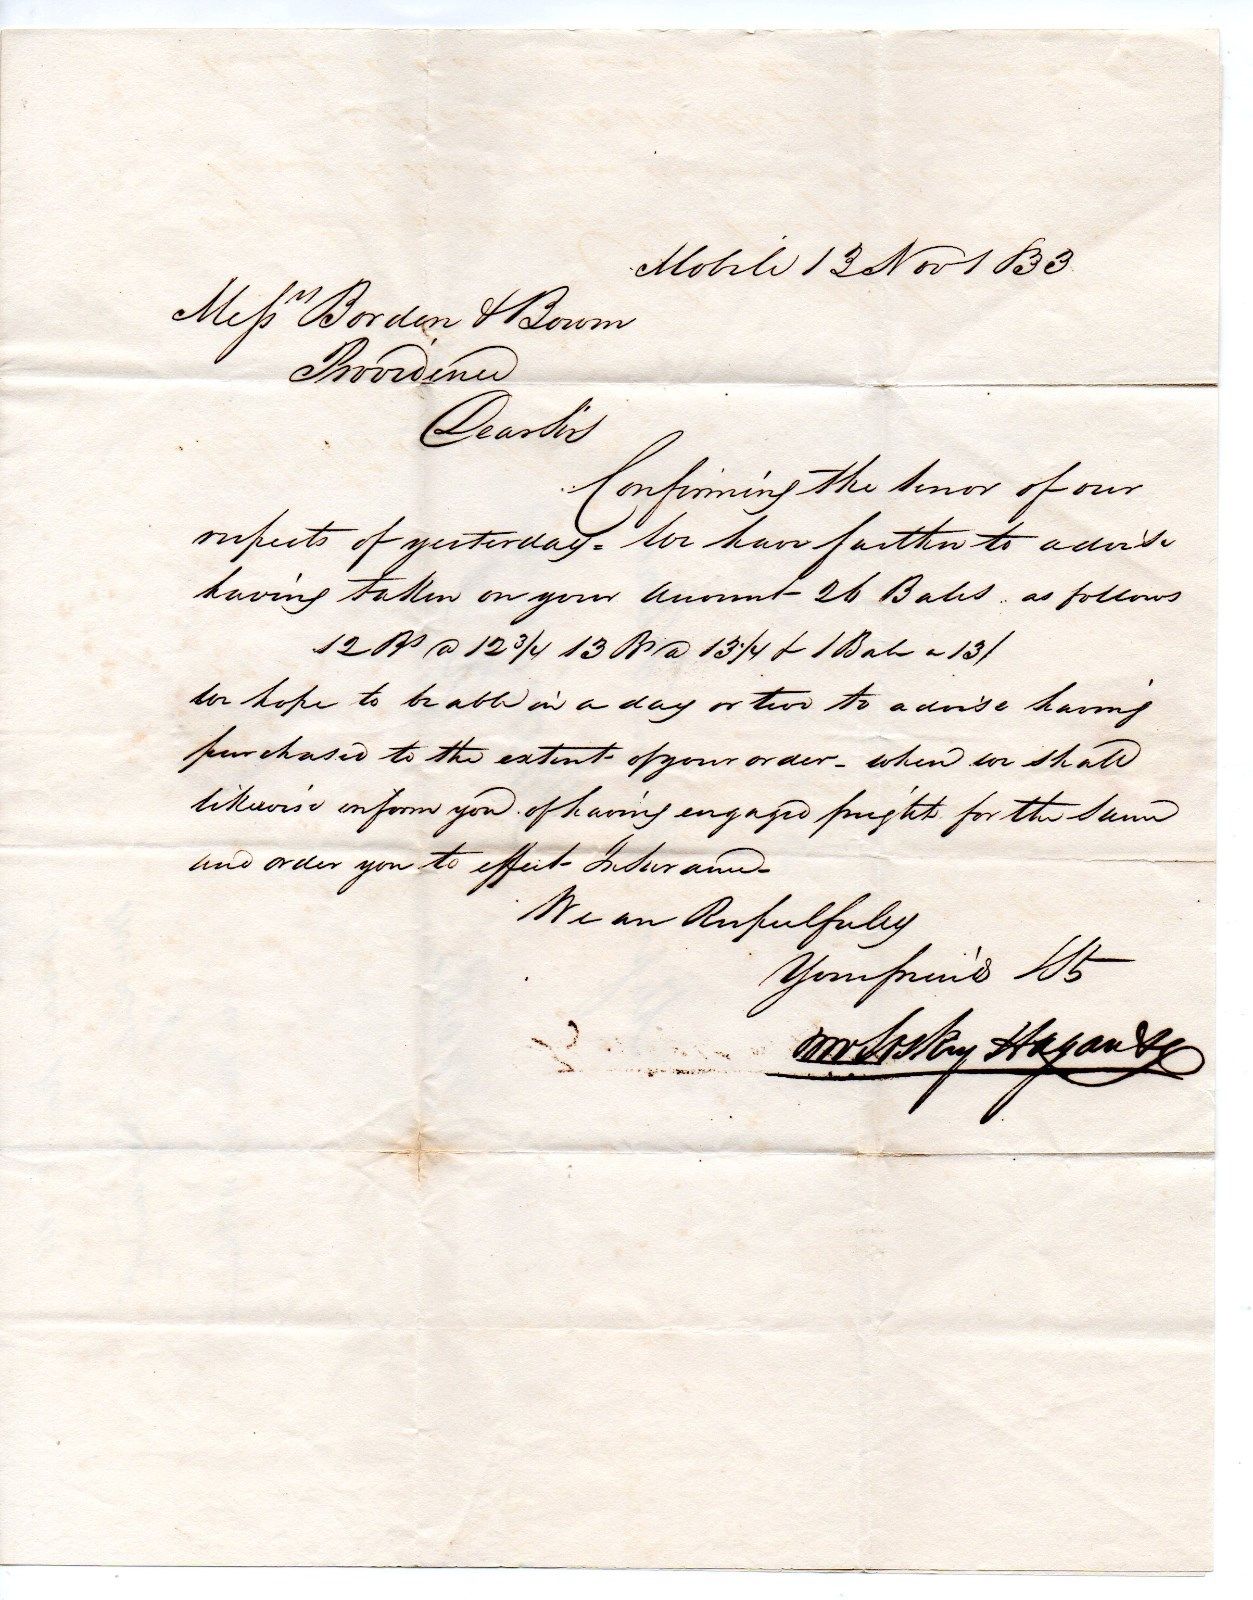 Mobile 13 Nov 1833
Messrs Borden & Bowen
Providence
Dear Sirs
Confirming the tenor of our
respects of yesterday - We have further to advise
having taken on your account 26 Bales as follows
12 Bs @ 12 3/4 13 Bs @ 13 1/4 & 1 Bale @ 13/
We hope to be able in a day or two to advise having
purchased to the extent of your order - when we shall
likewise inform you of having engaged freight for the same
and order you to effect Insurance -
We are Respectfully
Your friends
McLoskey Hagan & Co